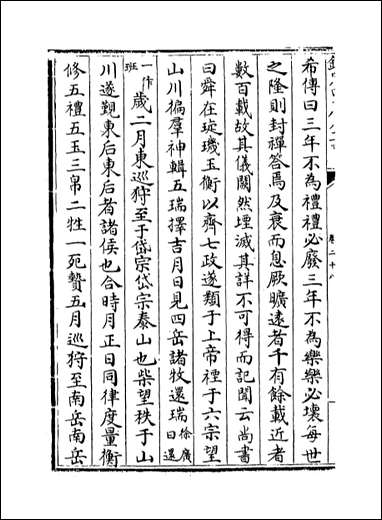 希傳曰三年不為禮禮必廢三年不為樂樂必壞每世
之隆則封禪答焉及衰而息厥曠遠者千有餘載近者
數百載故其儀闕然堙滅其詳不可得而記聞云尚書
曰舜在琁璣玉衡以齊七政遂類于上帝禋于六宗望
山川徧羣神輯五瑞擇吉月日見四岳諸牧還瑞徐廣曰還
一作班歲二月東巡狩至于岱宗岱宗泰山也柴望秩于山
川遂覲東后東后者諸侯也合時月正日同律度量衡
修五禮五玉三帛二牲一死贄五月巡狩至南岳南岳